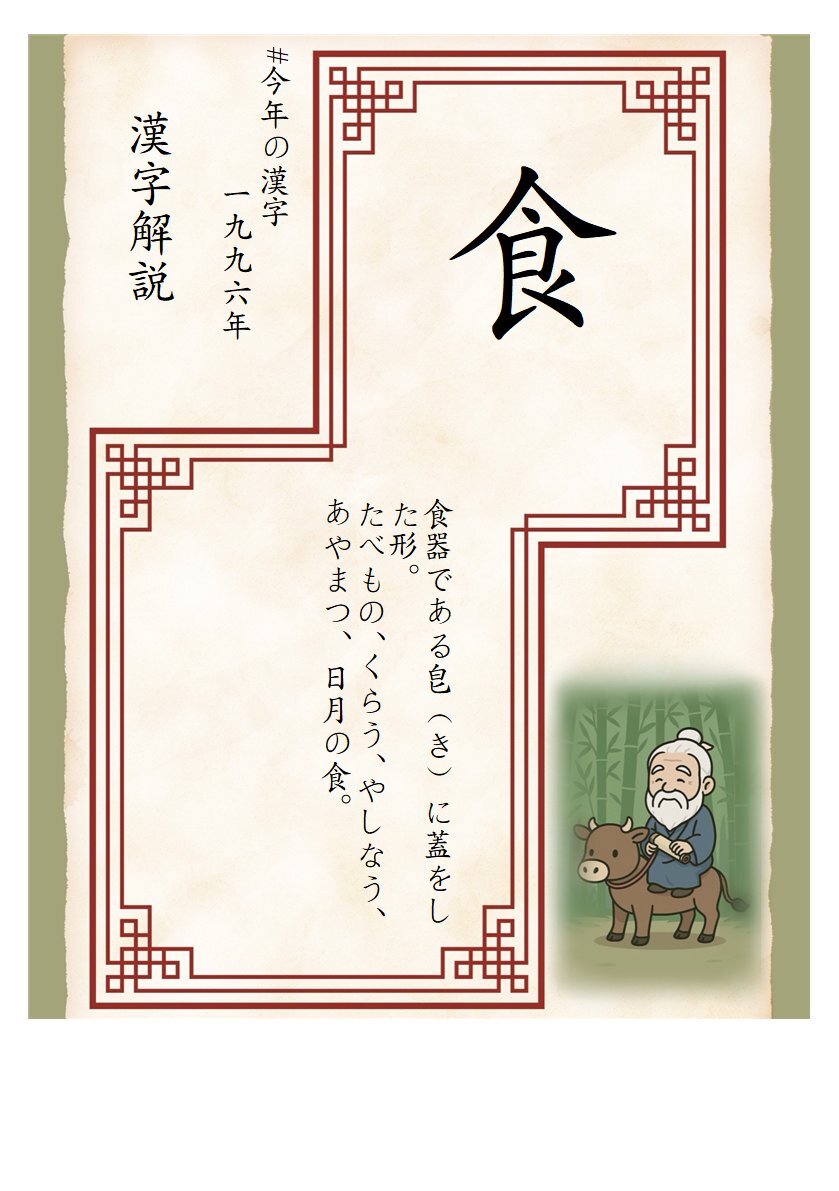 食
#今年の漢字
一九九六年
漢字解説
食器である皀(き)に蓋をし
た形。
たべもの、くらう、やしなう、
あやまつ、日月の食。